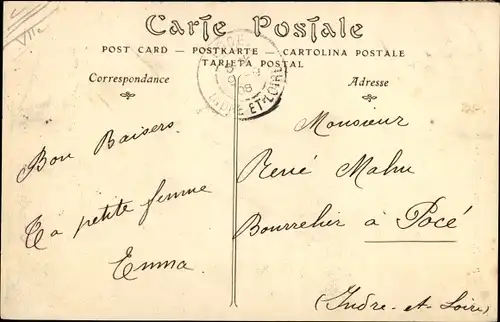 Ville
Carte Postale
POST CARD — POSTKARTE — CARTOLINA POSTALE
TARJETA POSTAL
Correspondance
Adresse
08
INDRE-ET-LOIRE
Bon Baisers
Ta petite femme
Emma
Monsieur
René Mahu
Bourrelier à Pocé
(Indre-et-Loire)